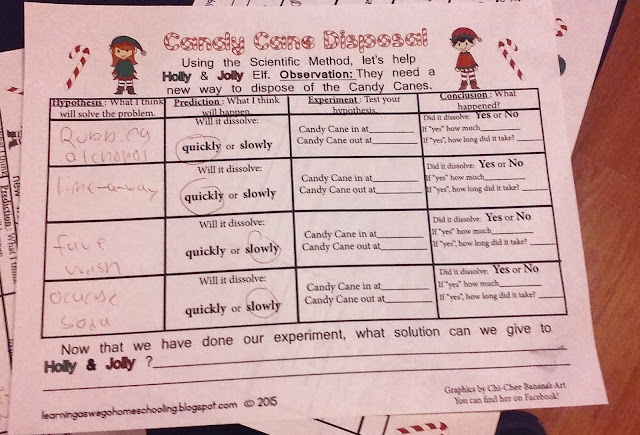 Candy Cane Disposal
Using the Scientific Method, let's help
Holly & Jolly Elf. Observation: They need a
new way to dispose of the Candy Canes.
Hypothesis: What I think will solve the problem.
Prediction: What I think will happen.
Experiment: Test your hypothesis.
Conclusion: What happened?
Rubbing alchohol
Will it dissolve:
quickly or slowly
Candy Cane in at
Candy Cane out at
Did it dissolve: Yes or No
If "yes" how much
If "yes", how long did it take?
lime-a-way
Will it dissolve:
quickly or slowly
Candy Cane in at
Candy Cane out at
Did it dissolve: Yes or No
If "yes" how much
If "yes", how long did it take?
face wash
Will it dissolve:
quickly or slowly
Candy Cane in at
Candy Cane out at
Did it dissolve: Yes or No
If "yes" how much
If "yes", how long did it take?
soda
Will it dissolve:
quickly or slowly
Candy Cane in at
Candy Cane out at
Did it dissolve: Yes or No
If "yes" how much
If "yes", how long did it take?
Now that we have done our experiment, what solution can we give to
Holly & Jolly ?
Graphics by Chi-Chee Bananas Art
You can find her on Facebook!
learningaswegohomeschooling.blogspot.com © 2015